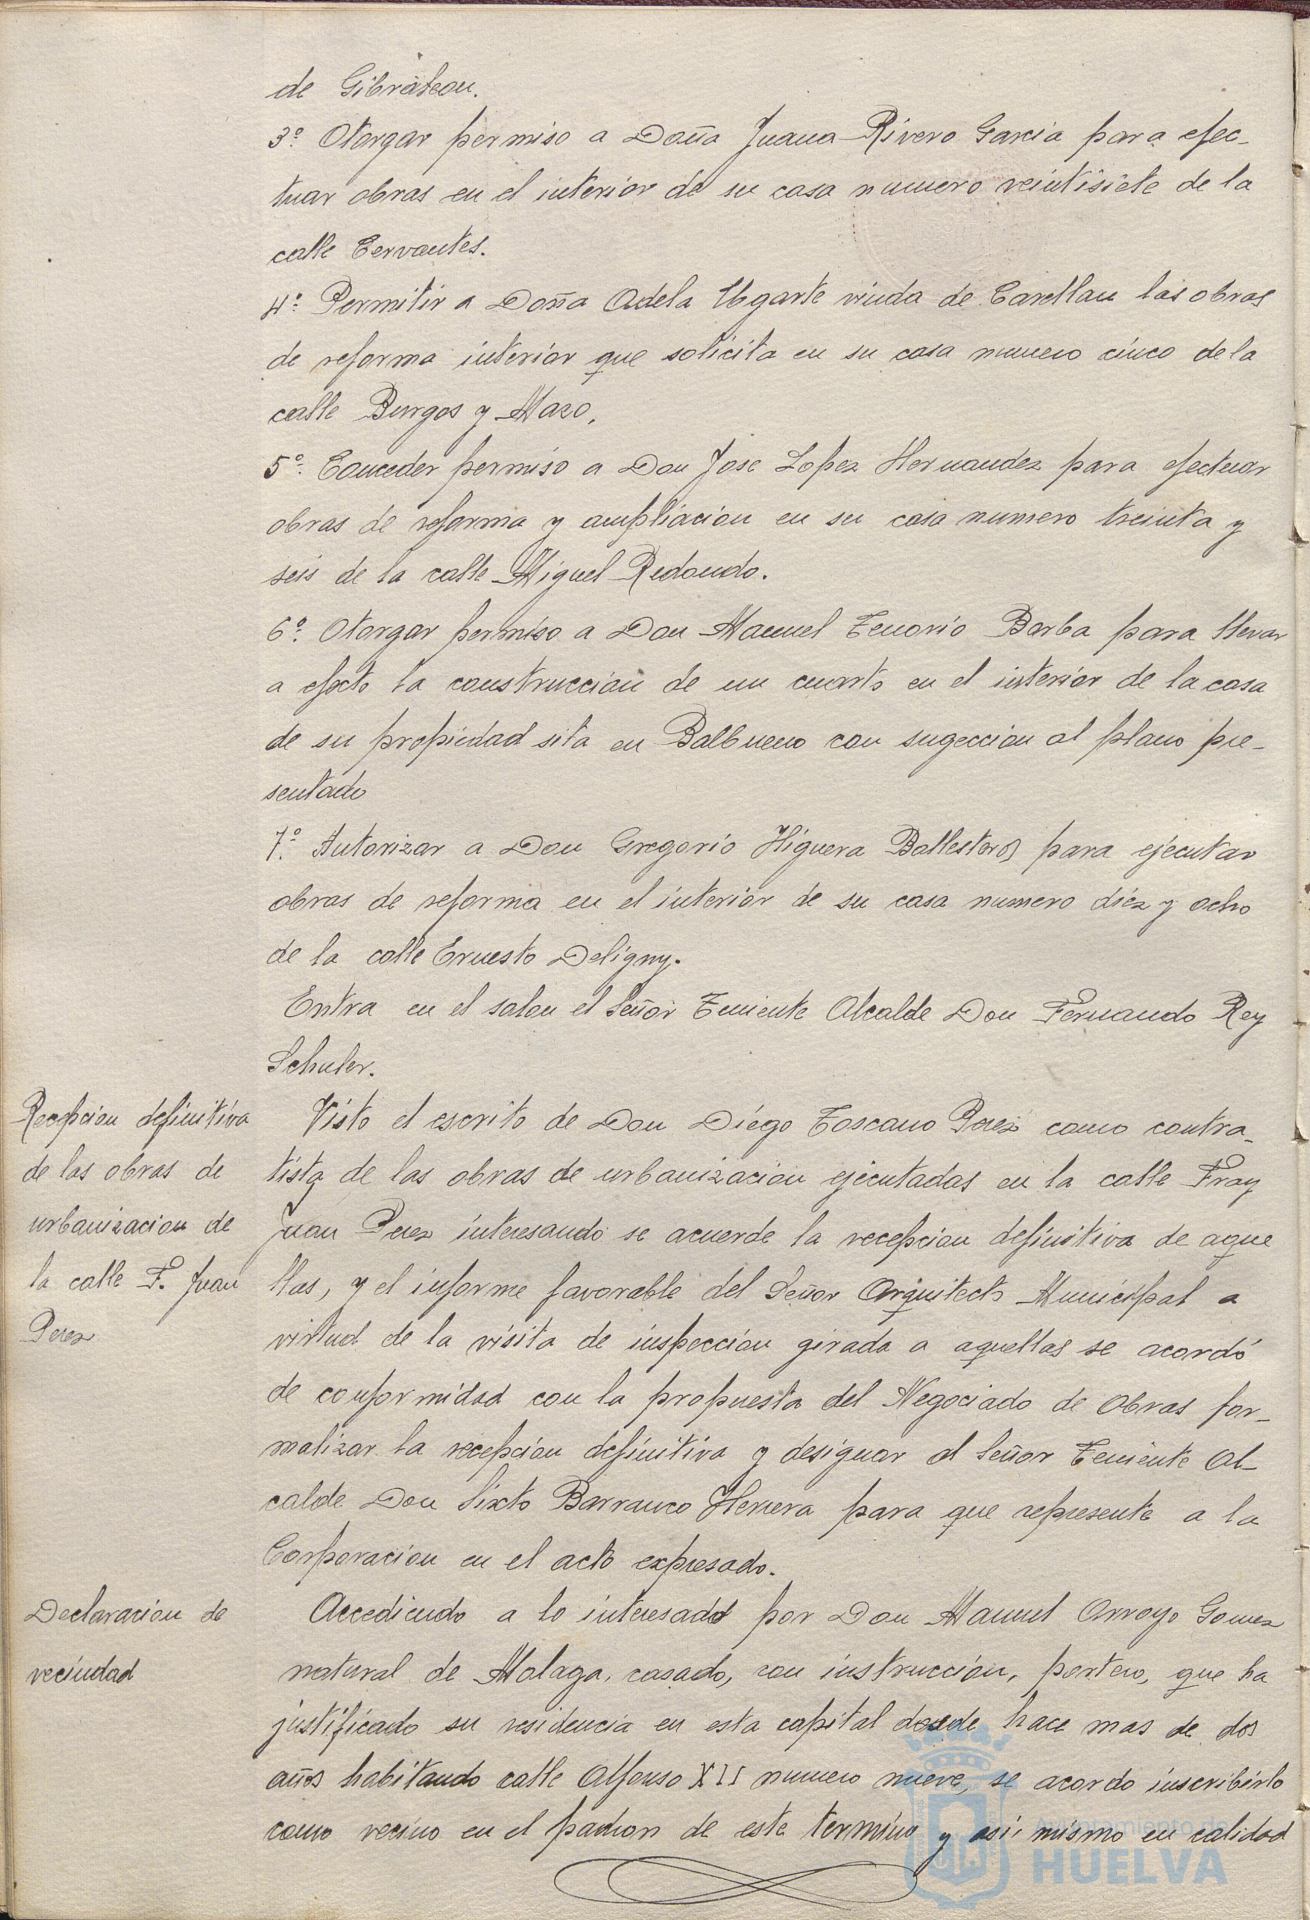 de Gibraleon.
3º. Otorgar permiso a Doña Juana Rivero Garcia para efec-
tuar obras en el interior de su casa numero veintisiete de la
calle Cervantes.
4º. Permitir a Doña Adela Ugarte viuda de Carellan las obras
de reforma interior que solicita en su casa numero cinco de la
calle Burgos y Mazo.
5º. Conceder permiso a Don Jose Lopez Hernandez para efectuar
obras de reforma y ampliacion en su casa numero treinta y
seis de la calle Miguel Redondo.
6º. Otorgar permiso a Don Manuel Tenorio Barba para llevar
a efecto la construccion de un cuarto en el interior de la casa
de su propiedad sita en Balbueno con sugeccion al plano pre-
sentado
7º. Autorizar a Don Gregorio Higuera Ballesteros para ejecutar
obras de reforma en el interior de su casa numero diez y ocho
de la calle Ernesto Deligny.
Entra en el salon el Señor Teniente Alcalde Don Fernando Rey
Schuler.
Recepcion definitiva
de las obras de
urbanizacion de
la calle F. Juan
Perez
Visto el escrito de Don Diego Toscano Perez como contra-
tista de las obras de urbanizacion ejecutadas en la calle Fray
Juan Perez interesando se acuerde la recepcion definitiva de aque
llas, y el informe favorable del Señor Arquitecto Municipal a
virtud de la visita de inspeccion girada a aquellas se acordó
de conformidad con la propuesta del Negociado de Obras for-
malizar la recepcion definitiva y designar al Señor Teniente Al-
calde Don Sixto Barranco Herrera para que represente a la
Corporacion en el acto expresado.
Declaracion de
vecindad
Accediendo a lo interesado por Don Manuel Arroyo Gomez
natural de Malaga, casado, con instruccion, portero, que ha
justificado su residencia en esta capital desde hace mas de dos
años habitando calle Alfonso XII numero nueve, se acordo inscribirlo
como vecino en el padron de este termino y asi mismo en calidad
Ayuntamiento de
HUELVA